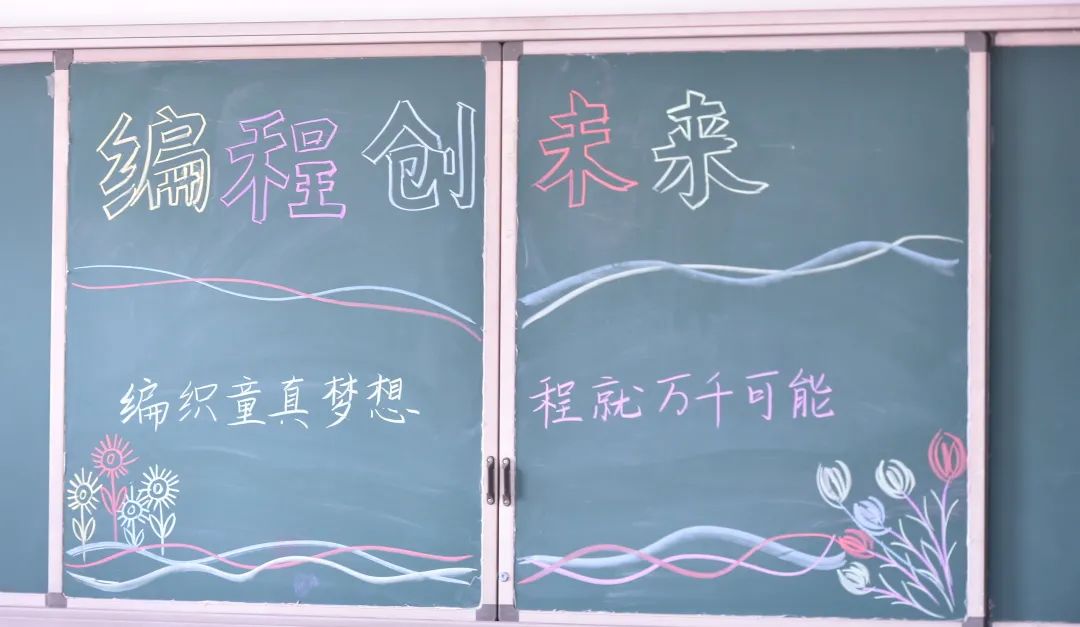 编程创未来
编织童真梦想
程就万千可能